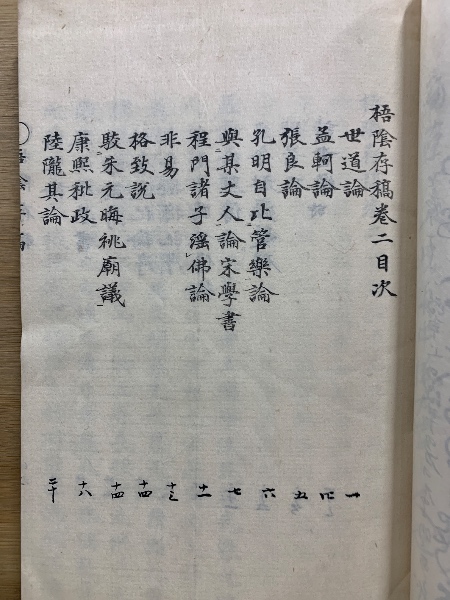 梧陰存稿卷二目次
世道論 一
孟軻論 四
張良論 五
孔明自比管樂論 六
與某丈人論宋學書 七
程門諸子淫佛論 十一
非易 十三
格致說 十四
駁朱元晦祧廟議 十四
康熙秕政 十八
陸隴其論 二十